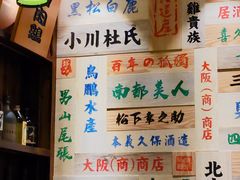 黒松白鹿
道屋
雞貴族
小川杜氏
百年の孤獨
烏鵬水産
南部美人
大阪(商)商店
男山尾張
松下幸之助
本義久保酒造
大阪(商)商店
三
北